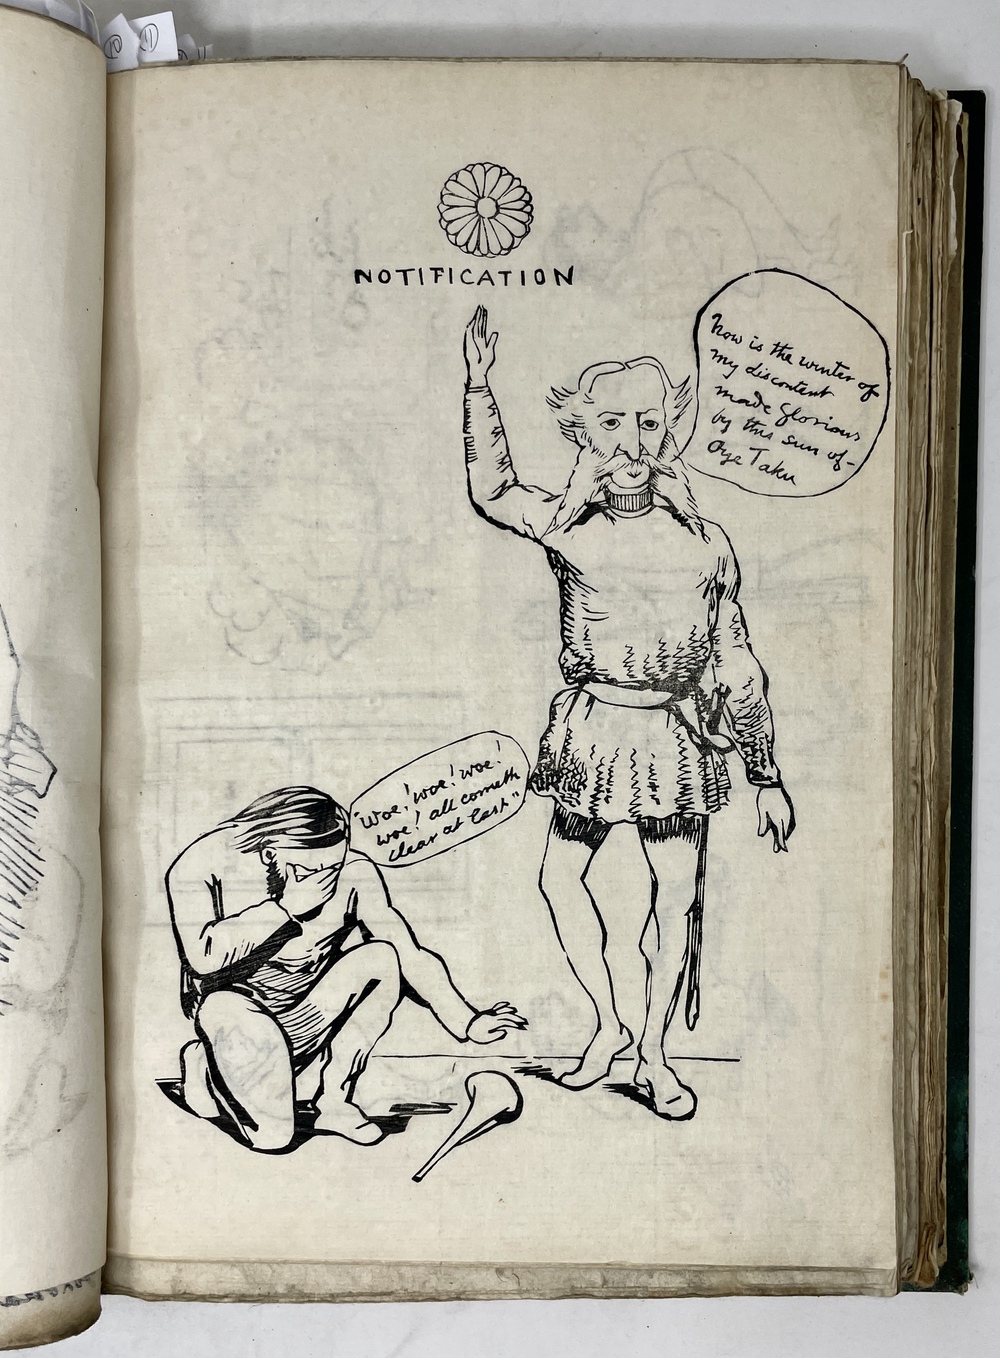 NOTIFICATION
Now is the winter of
my discontent
made glorious
by this sun of-
Oye Taku
"Woe! woe! woe!
woe! all cometh
clear at last"
10
11